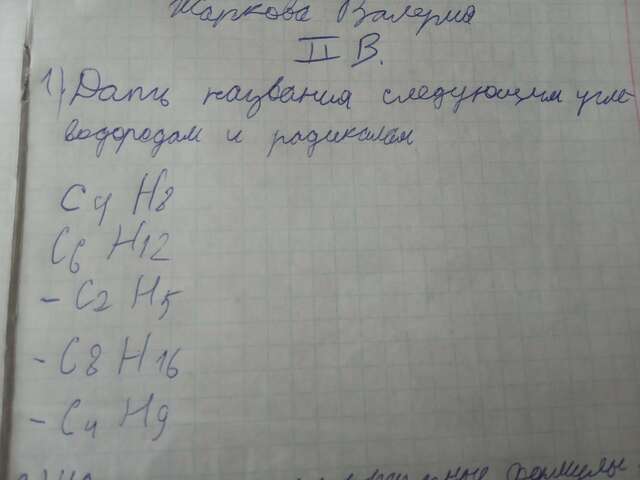 Жаркова Валерия
II В.
1) Дать названия следующим угле
водородам и радикалам
C4 H8
C6 H12
- C2 H5
- C8 H16
- C4 H9
формулы